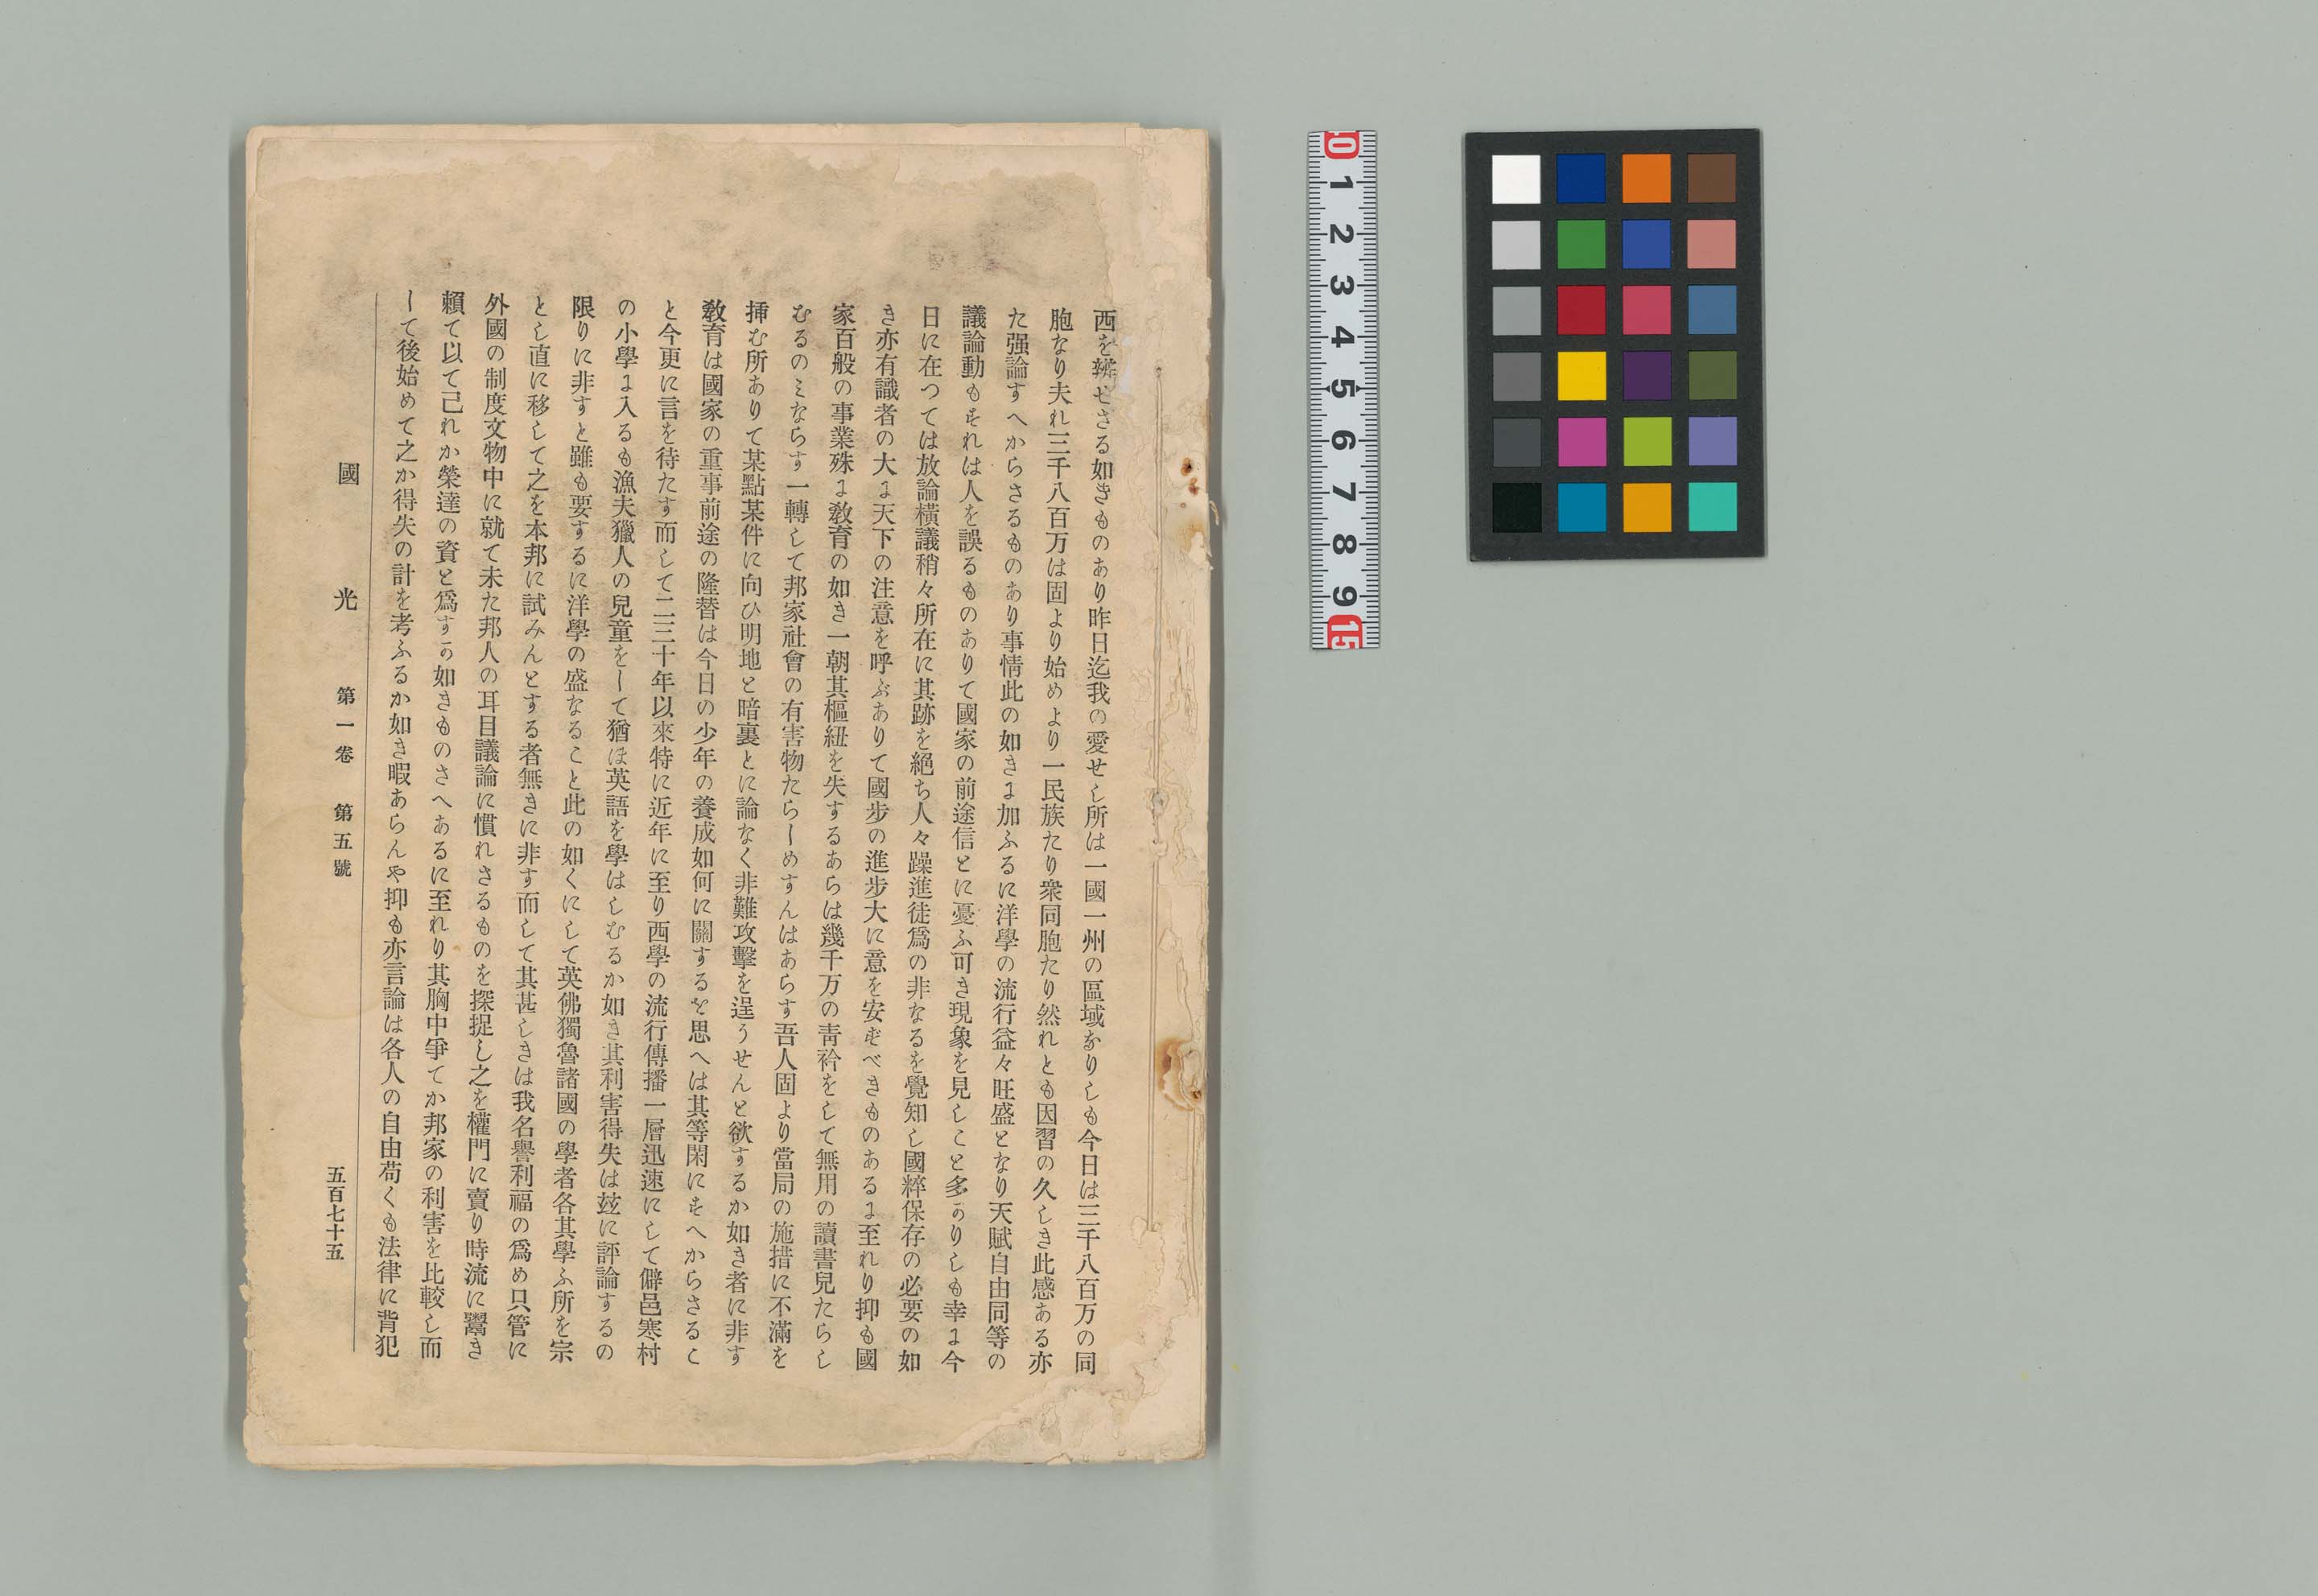 西を辨せさる如きものあり昨日迄我の愛せし所は一國一州の區域なりしも今日は三千八百万の同
胞なり夫れ三千八百万は固より始めより一民族たり衆同胞たり然れとも因習の久しき此感ある亦
た强論すへからさるものあり事情此の如きに加ふるに洋學の流行益々旺盛となり天賦自由同等の
議論動もすれは人を誤るものありて國家の前途信とに憂ふ可き現象を見しこと多かりしも幸に今
日に在つては放論橫議稍々所在に其跡を絕ち人々躁進徒爲の非なるを覺知し國粹保存の必要の如
き亦有識者の大に天下の注意を呼ぶありて國步の進步大に意を安ずべきものあるに至れり抑も國
家百般の事業殊に敎育の如き一朝其樞紐を失するあらは幾千万の靑衿をして無用の讀書兒たらし
むるのミならす一轉して邦家社會の有害物たらしめすんはあらす吾人固より當局の施措に不滿を
揷む所ありて某點某件に向ひ明地と暗裏とに論なく非難攻擊を逞うせんと欲するか如き者に非す
敎育は國家の重事前途の隆替は今日の少年の養成如何に關するを思へは其等閑にすへからさるこ
と今更に言を待たす而して二三十年以來特に近年に至り西學の流行傳播一層迅速にして僻邑寒村
の小學に入るも漁夫獵人の兒童をして猶ほ英語を學はしむるか如き其利害得失は玆に評論するの
限りに非すと雖も要するに洋學の盛なること此の如くにして英佛獨魯諸國の學者各其學ふ所を宗
とし直に移して之を本邦に試みんとする者無きに非す而して其甚しきは我名譽利福の爲め只管に
外國の制度文物中に就て未た邦人の耳目議論に慣れさるものを探捉し之を權門に賣り時流に鬻き
賴て以て己れか榮達の資と爲すか如きものさへあるに至れり其胸中爭てか邦家の利害を比較し而
して後始めて之か得失の計を考ふるか如き暇あらんや抑も亦言論は各人の自由苟くも法律に背犯
國光 第一卷 第五號 五百七十五
0 1 2 3 4 5 6 7 8 9 15